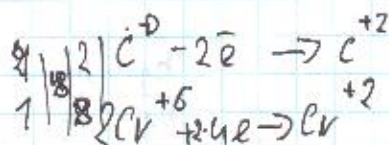 4 | | 2 | C⁰ - 2ē → C⁺²
1 | 8 | 2Cr⁺⁶ +2·4e → Cr⁺²